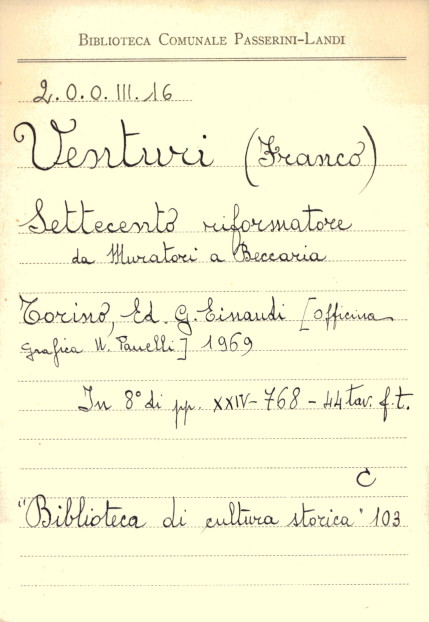 BIBLIOTECA COMUNALE PASSERINI-LANDI
2.0.0.III.16
Venturi (Franco)
Settecento riformatore
da Muratori a Beccaria
Torino, Ed. G. Einaudi [Officina
grafica U. Panelli] 1969
In 8° di pp. XXIV-768-44 tav. f.t.
C
"Biblioteca di cultura storica" 103